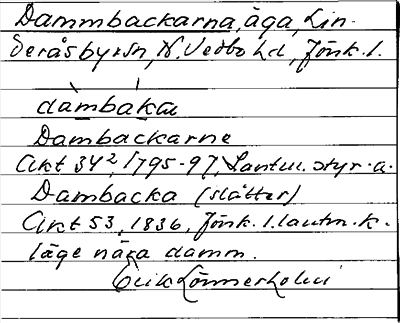 Dammbackarna, äga, Lin-
deråsbyrsn, N. Vedbo hd, Jönk. l.
dàmbáka
Dambackarne
Akt 34², 1795-97, Lantm. styr. a.
Dambacka (slåtter)
Akt 53, 1836, Jönk. l. lantm. k.
läge nära damm.
Erik Lönnerholm